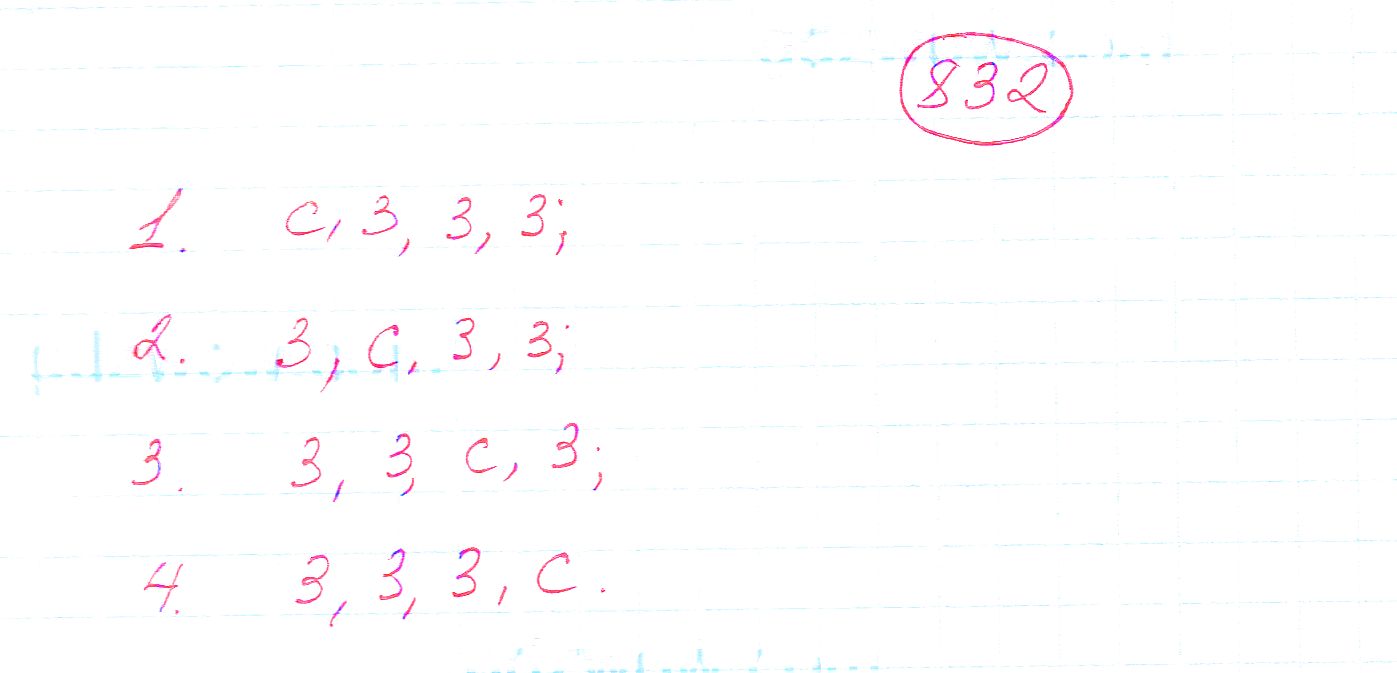 832
1. с, з, з, з;
2. з, с, з, з;
3. з, з, с, з;
4. з, з, з, с.